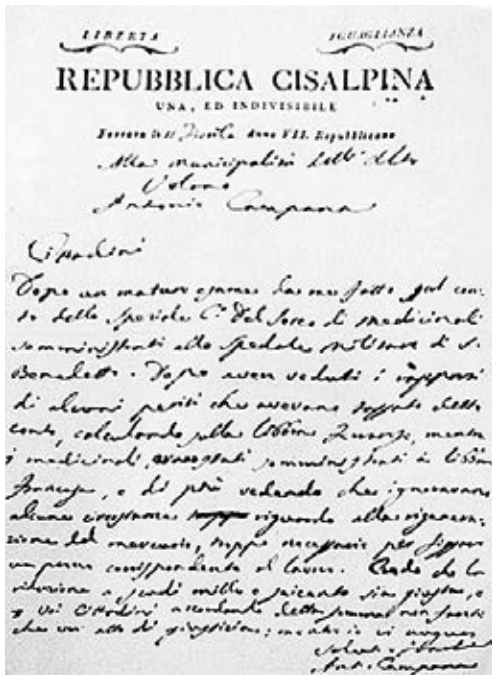 LIBERTA EGUAGLIANZA
REPUBBLICA CISALPINA
UNA, ED INDIVISIBILE
Ferrara li Anno VII. Repubblicano
Alla Municipalità dell'
Volano
Antonio Campana
Cittadini
Dopo un maturo esame da me fatto sul con-
to dello Speziale C. Del di medicinali
somministrati allo Spedale militare di S.
Benedetto. Dopo aver veduti i
di alcuni periti che avevano detto
conto, calcolando sulla libbra, mentre
i medicinali somministrati a libbra
Francese, e di più vedendo che ignoravano
alcune circostanze riguardo alla rigenera-
zione del mercurio, troppo necessarie per fissare
un prezzo corrispondente al lavoro. Credo che la
riduzione a scudi mille e seicento sia giusta, e
Voi Cittadini accordando detta non farete
che un atto di giustizia; mentre io vi auguro
Salute,
Ant. Campana